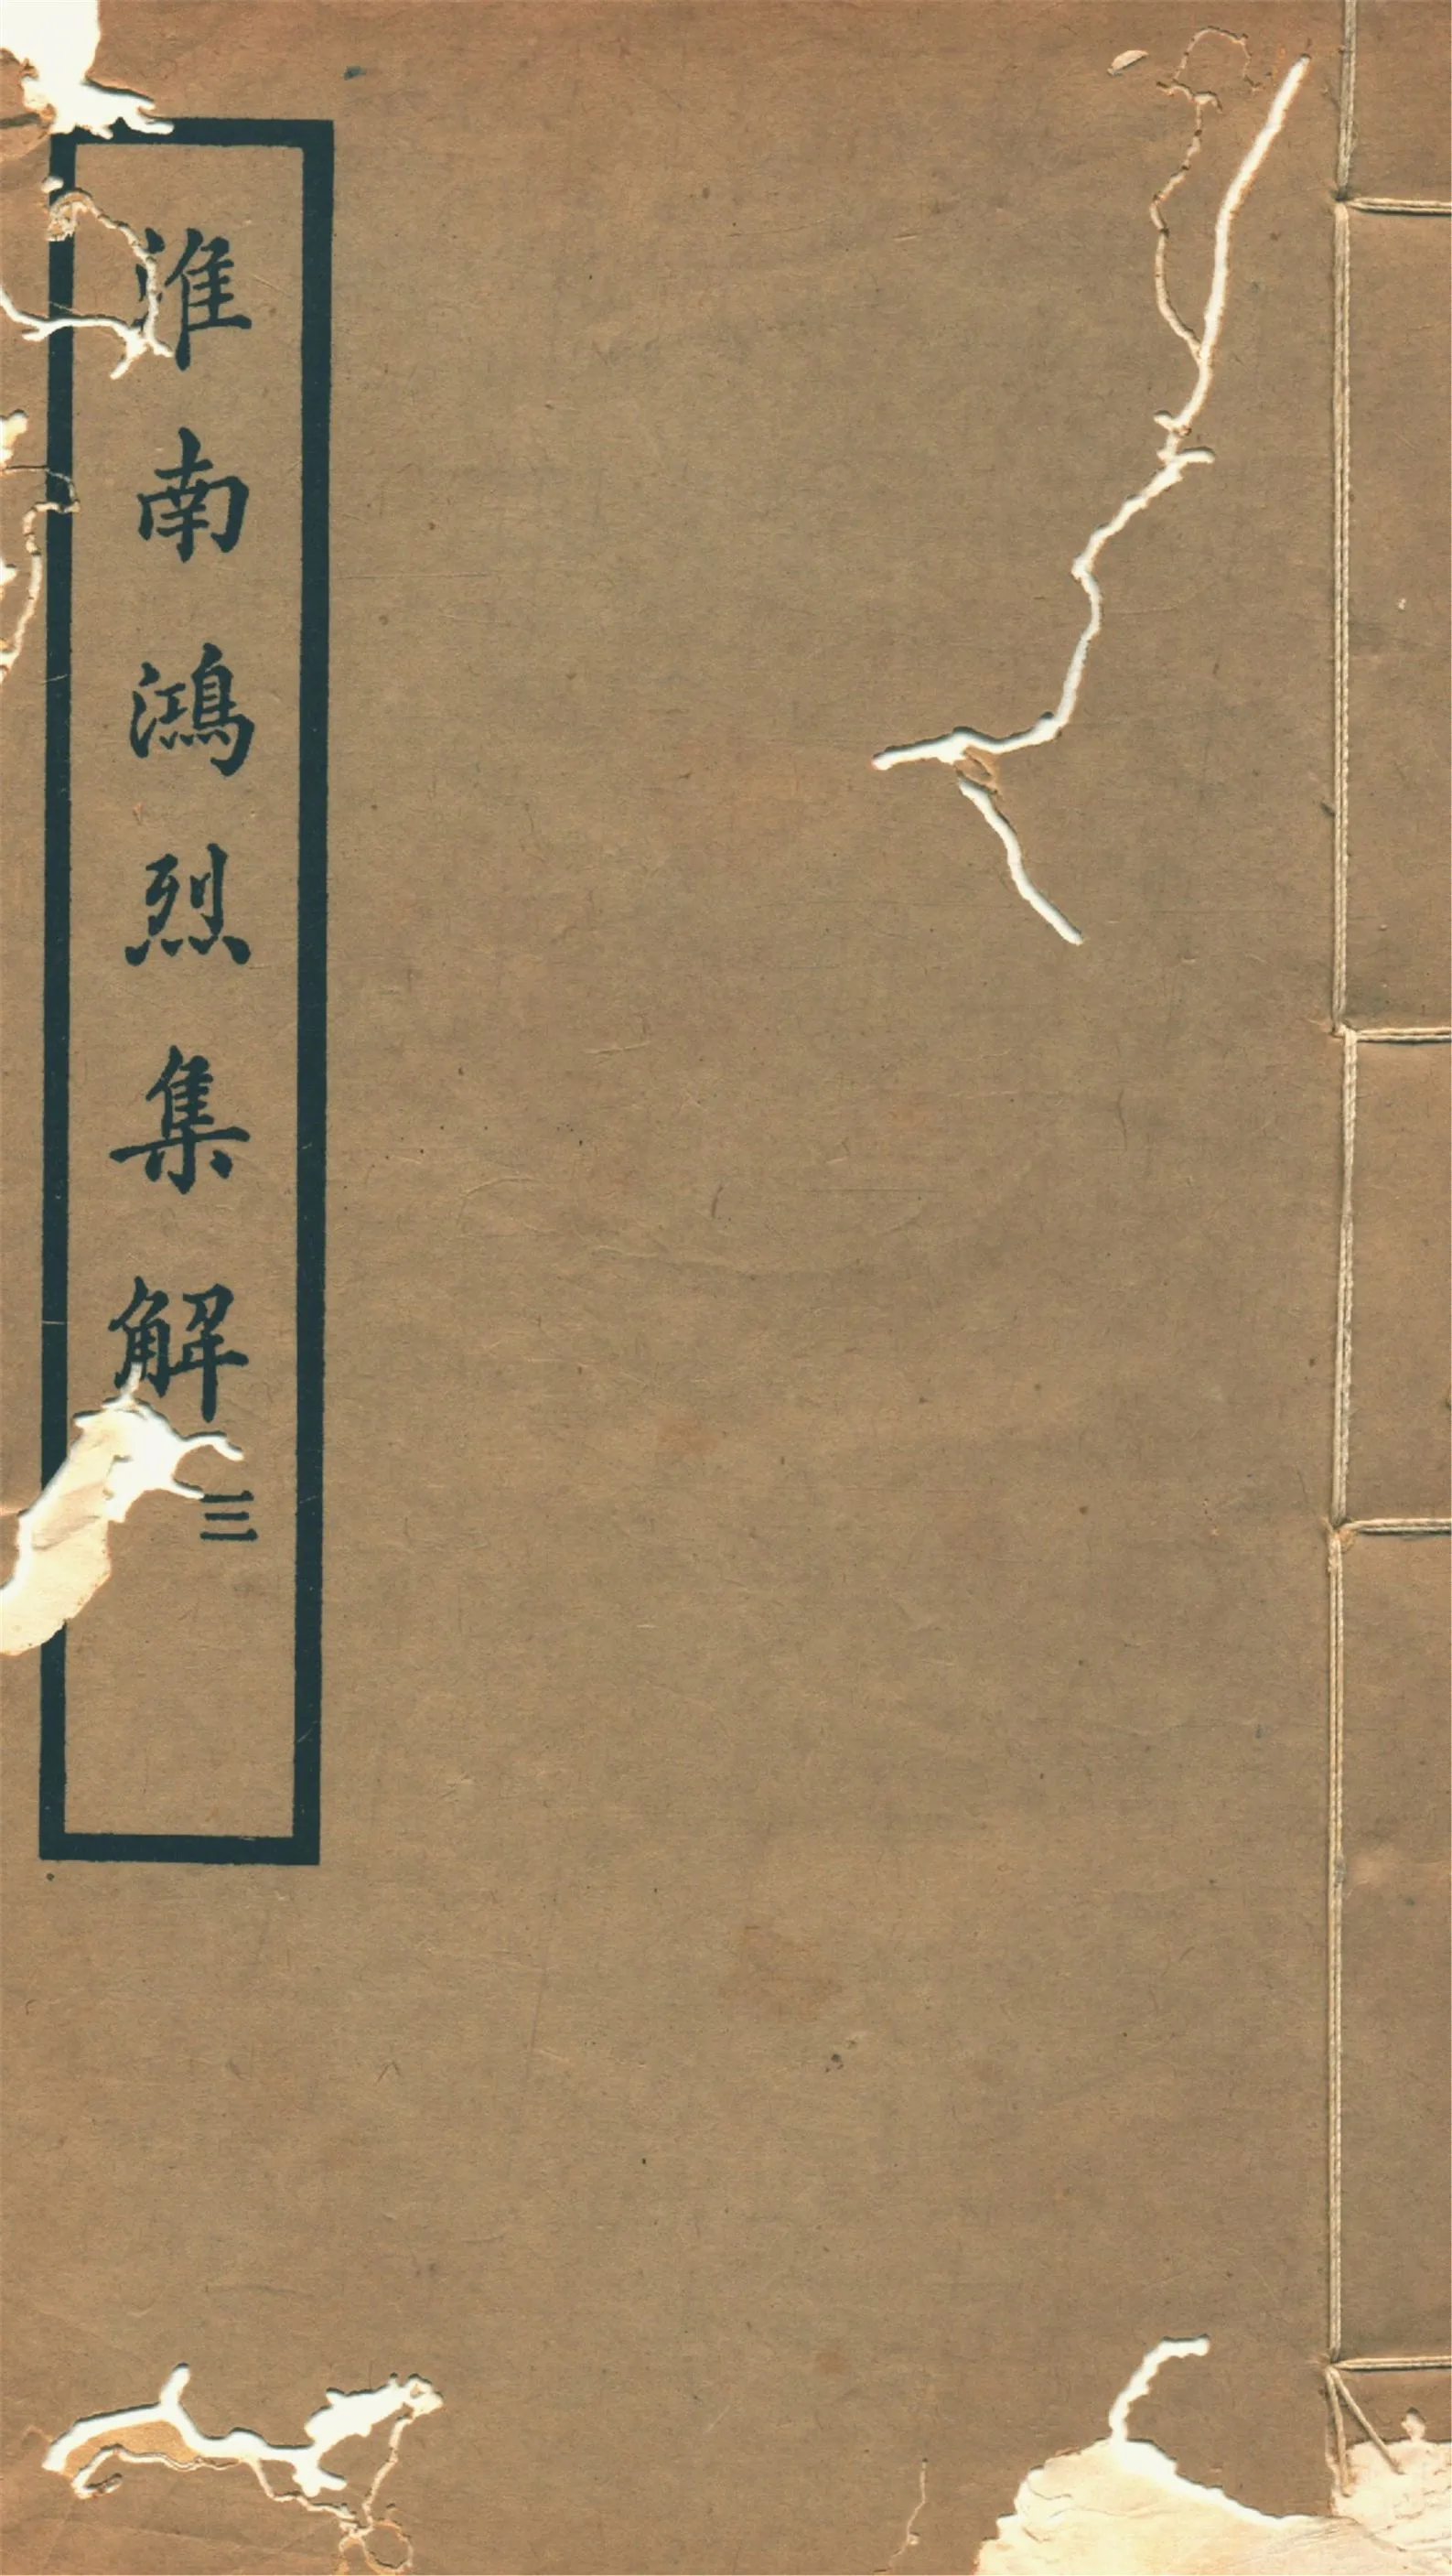 淮南鴻烈集解三